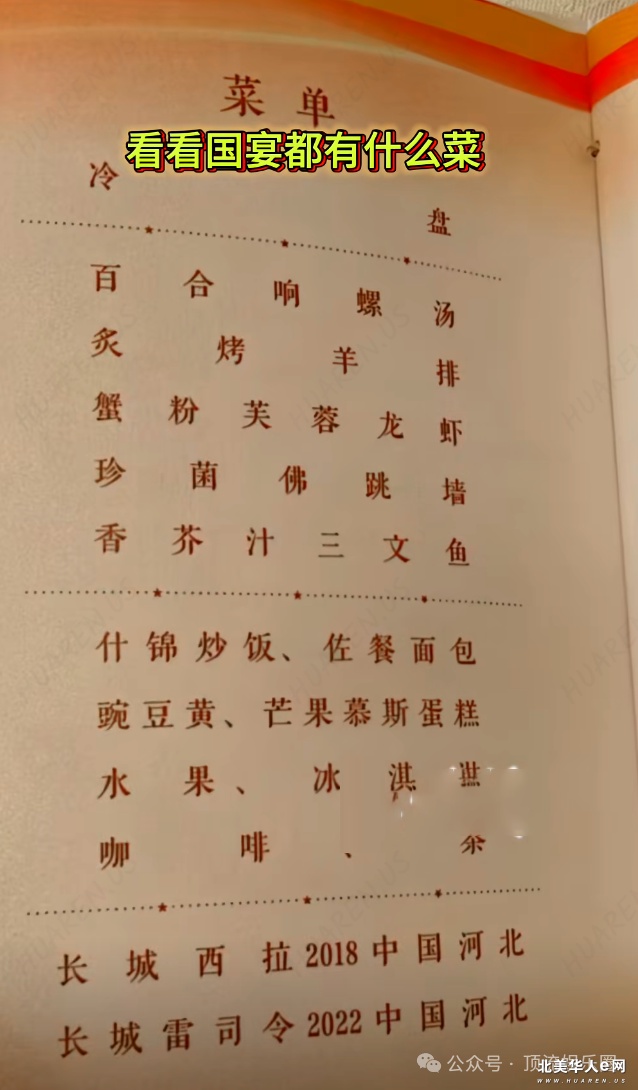 菜单
看看国宴都有什么菜
冷盘
百合响螺汤
炙烤羊排
蟹粉芙蓉龙虾
珍菌佛跳墙
香芥汁三文鱼
什锦炒饭、佐餐面包
豌豆黄、芒果慕斯蛋糕
水果、冰淇
咖啡、
长城西拉2018中国河北
长城雷司令2022中国河北
公众号·顶流娱乐圈
北美华人e网
WWW.HUAREN.US
HUAREN.US